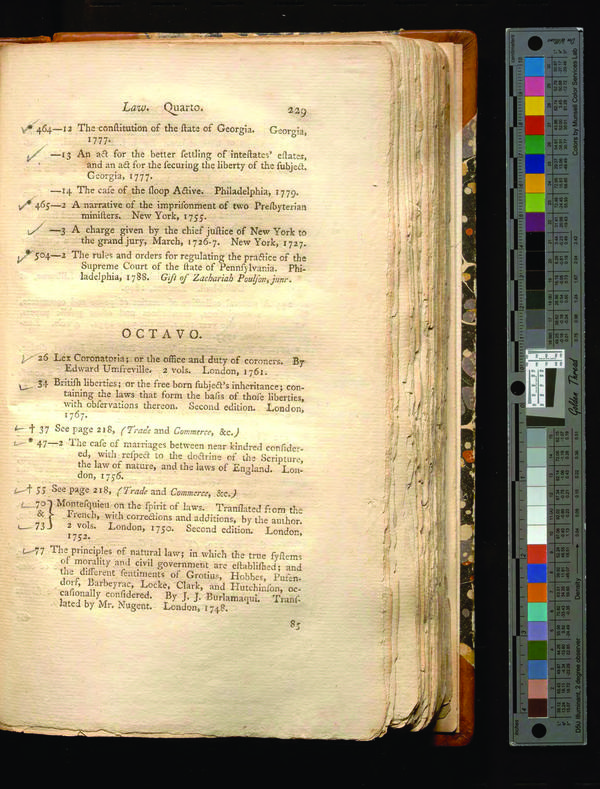 Law. Quarto. 229
* 464—12 The conſtitution of the ſtate of Georgia. Georgia,
1777.
—13 An act for the better ſettling of inteſtates' eſtates,
and an act for the ſecuring the liberty of the ſubject.
Georgia, 1777.
—14 The caſe of the ſloop Active. Philadelphia, 1779.
* 465—2 A narrative of the impriſonment of two Preſbyterian
miniſters. New York, 1755.
—3 A charge given by the chief juſtice of New York to
the grand jury, March, 1726-7. New York, 1727.
* 504—2 The rules and orders for regulating the practice of the
Supreme Court of the ſtate of Pennſylvania. Phi-
ladelphia, 1788. Gift of Zachariah Poulſon, junr.
OCTAVO.
26 Lex Coronatoria; or the office and duty of coroners. By
Edward Umfreville. 2 vols. London, 1761.
34 Britiſh liberties; or the free born ſubject's inheritance; con-
taining the laws that form the baſis of thoſe liberties,
with obſervations thereon. Second edition. London,
1767.
† 37 See page 218, (Trade and Commerce, &c.)
* 47—2 The caſe of marriages between near kindred conſider-
ed, with reſpect to the doctrine of the Scripture,
the law of nature, and the laws of England. Lon-
don, 1756.
† 55 See page 218, (Trade and Commerce, &c.)
70 } Monteſquieu on the ſpirit of laws. Tranſlated from the
& } French, with corrections and additions, by the author.
73 } 2 vols. London, 1750. Second edition. London,
1752.
77 The principles of natural law; in which the true ſyſtems
of morality and civil government are eſtabliſhed; and
the different ſentiments of Grotius, Hobbes, Pufen-
dorf, Barbeyrac, Locke, Clark, and Hutchinſon, oc-
caſionally conſidered. By J. J. Burlamaqui. Tranſ-
lated by Mr. Nugent. London, 1748.
85
Colors by Munsell Color Services Lab
Golden Thread
Density
D50 Illuminant, 2 degree observer